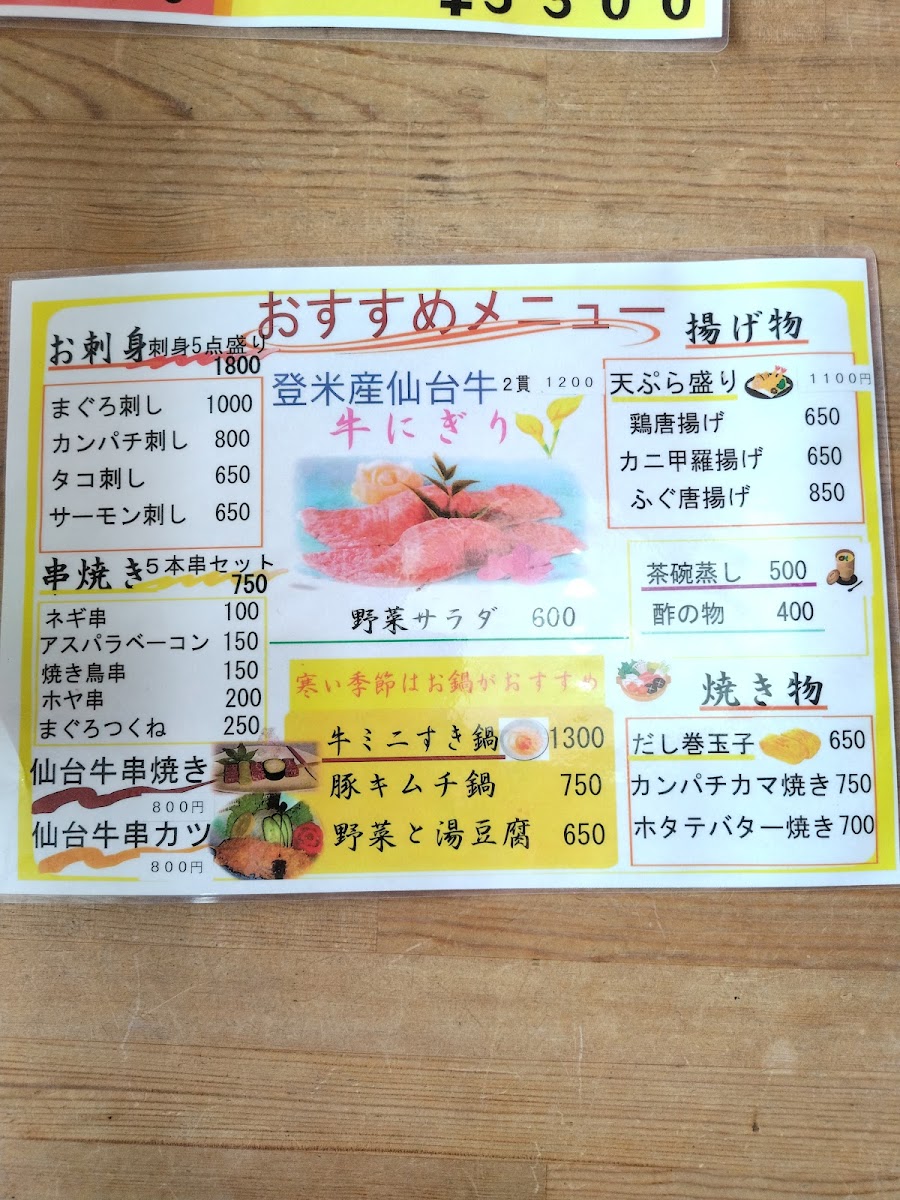 ¥5500
おすすめメニュー
お刺身 刺身5点盛り
1800
まぐろ刺し 1000
カンパチ刺し 800
タコ刺し 650
サーモン刺し 650
串焼き 5本串セット
750
ネギ串 100
アスパラベーコン 150
焼き鳥串 150
ホヤ串 200
まぐろつくね 250
仙台牛串焼き
800円
仙台牛串カツ
800円
登米産仙台牛 2貫 1200
牛にぎり
野菜サラダ 600
寒い季節はお鍋がおすすめ
牛ミニすき鍋 1300
豚キムチ鍋 750
野菜と湯豆腐 650
揚げ物
天ぷら盛り 1100円
鶏唐揚げ 650
カニ甲羅揚げ 650
ふぐ唐揚げ 850
茶碗蒸し 500
酢の物 400
焼き物
だし巻玉子 650
カンパチカマ焼き 750
ホタテバター焼き 700